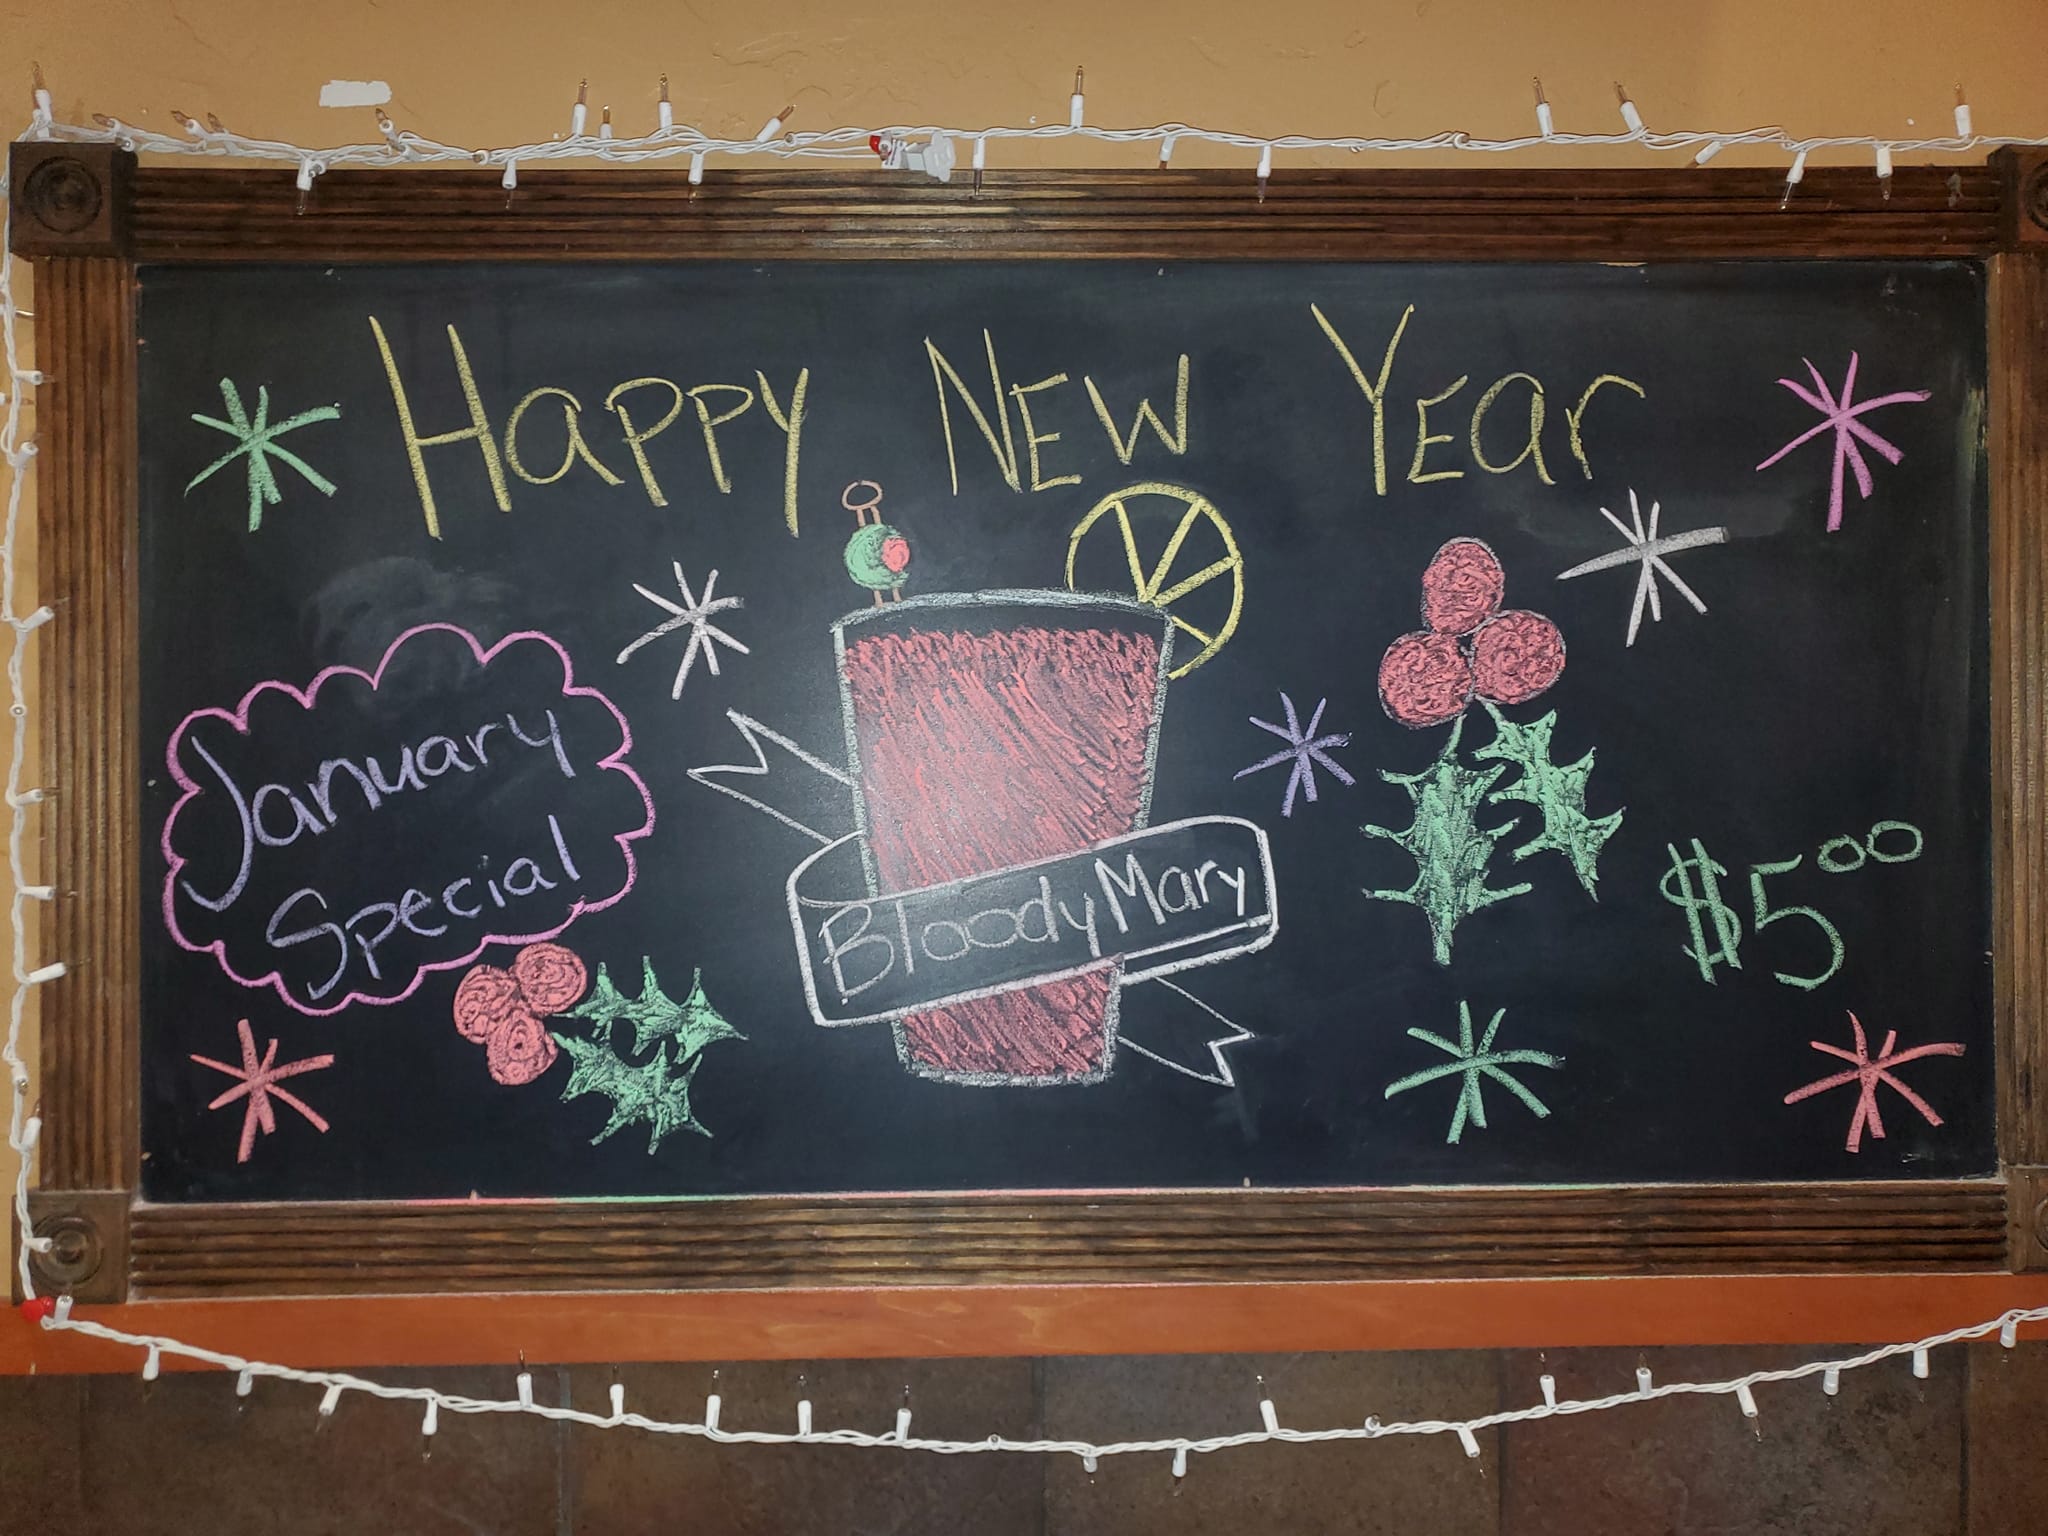 Happy New Year
January
Special
Bloody Mary
$5⁰⁰